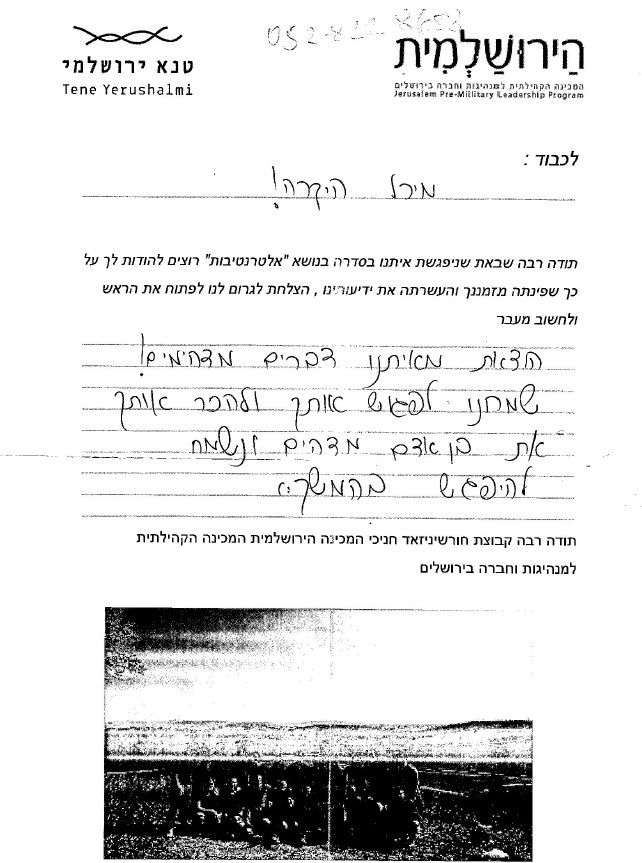 טנא ירושלמי
Tene Yerushalmi
הירושלמית
המכינה הקהילתית למנהיגות וחברה בירושלים
Jerusalem Pre-Military Leadership Program
לכבוד :
מירל היקרה!
תודה רבה שבאת שניפגשת איתנו בסדרה בנושא "אלטרנטיבות" רוצים להודות לך על
כך שפינתה מזמננך והעשרתה את ידיעותינו , הצלחת לגרום לנו לפתוח את הראש
ולחשוב מעבר
הוצאת מאיתנו דברים מדהימים!
שמחנו לפגוש אותך ולהכר אותך
את בן אדם מדהים ונשמח
להיפגש בהמשך:)
תודה רבה קבוצת חורשיניזאד חניכי המכינה הירושלמית המכינה הקהילתית
למנהיגות וחברה בירושלים